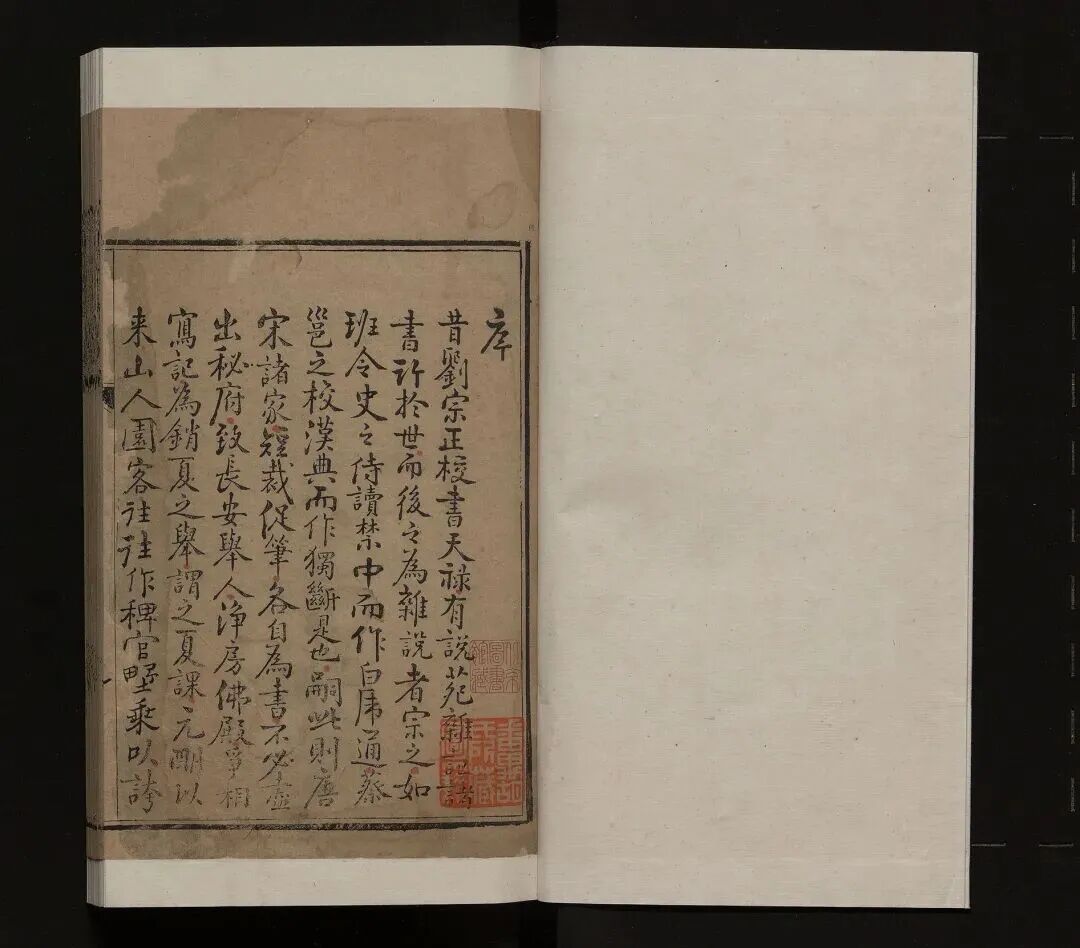 序
昔劉宗正校書天祿有說苑雜記諸
書行於世而後之為雜說者宗之如
班令史之侍讀禁中而作白虎通蔡
邕之校漢典而作獨斷是也嗣此則唐
宋諸家短裁促筆各自為書不必盡
出秘府致長安舉人淨房佛殿爭相
寫記為銷夏之舉謂之夏課元明以
来山人園客往往作稗官野乘以誇